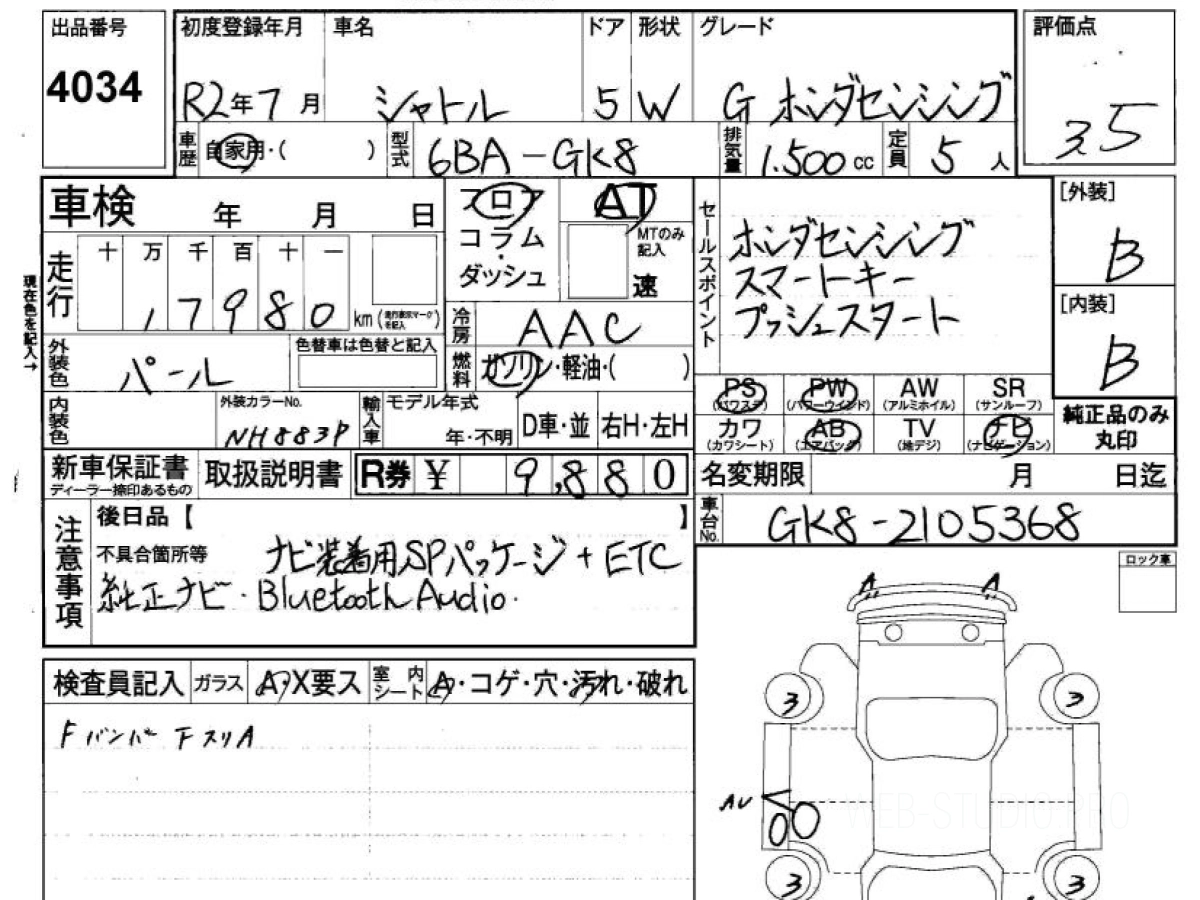 出品番号
4034
初度登録年月
R2年7月
車名
シャトル
ドア
5
形状
W
グレード
G ホンダセンシング
評価点
3.5
車歴 自家用・( )
型式 6BA-GK8
排気量 1.500cc
定員 5人
車検 年 月 日
フロア
コラム
・
ダッシュ
AT
MTのみ記入
速
セールスポイント
ホンダセンシング
スマートキー
プッシュスタート
[外装]
B
[内装]
B
現在色を記入→
走行
十 万 千 百 十 一
1 7 9 8 0 km(走行表示マークを記入)
冷房 AAC
燃料 ガソリン・軽油・( )
外装色 パール
色替車は色替と記入
内装色
外装カラーNo.
NH883P
輸入車
モデル年式
年・不明
D車・並
右H・左H
PS AW SR
(パワステ) PW (パワーウインド) (アルミホイル) (サンルーフ)
カワ AB TV ナビ
(カワシート) (エアバッグ) (地デジ) (ナビゲーション)
純正品のみ
丸印
新車保証書
ディーラー捺印あるもの
取扱説明書
R券 ¥ 9,880
名変期限 月 日迄
車台No. GK8-2105368
注意事項
後日品【 】
不具合箇所等 ナビ装着用SPパッケージ+ETC
純正ナビ・Bluetooth Audio.
ロック車
検査員記入 ガラス A・X要ス 室内シート A・コゲ・穴・汚れ・破れ
Fバンパー下スリA
A A
3 3
AU
WEB-STUDIO.PRO
3 3